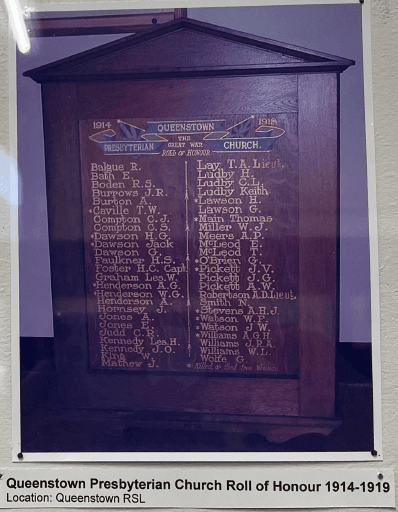 1914 QUEENSTOWN 1918
PRESBYTERIAN THE CHURCH.
GREAT WAR
ROLL OF HONOUR
Balque R.
Bath E.
Boden R.S.
Burrows J.R.
Burton A.
Caville T.W.
Compton C.J.
Compton C.S.
Dawson H.G.
Dawson Jack
Dawson G.
Faulkner H.S.
Foster H.C. Capt.
Graham Les. W.
Henderson A.G.
Henderson W.G.
Henderson A.
Hornsey J.
Jones A.
Jones E.
Judd C.R.
Kennedy Les. H.
Kennedy J.O.
King W.
Mathew J.
Lay T.A. Lieut.
Ludby H.
Ludby C.L.
Ludby Keith
Lawson H.
Lawson G.
Main Thomas
Miller W.J.
Meers A.P.
McLeod E.
McLeod T.
O'Brien G.
Pickett J.V.
Pickett J.G.
Pickett A.W.
Robertson A.D. Lieut.
Smith N.
Stevens A.H.J.
Watson W.P.
Watson J.W.
Williams A.G.H.
Williams J.R.A.
Williams W.L.
Wolfe G.
Killed or Died from Wounds
Queenstown Presbyterian Church Roll of Honour 1914-1919
Location: Queenstown RSL